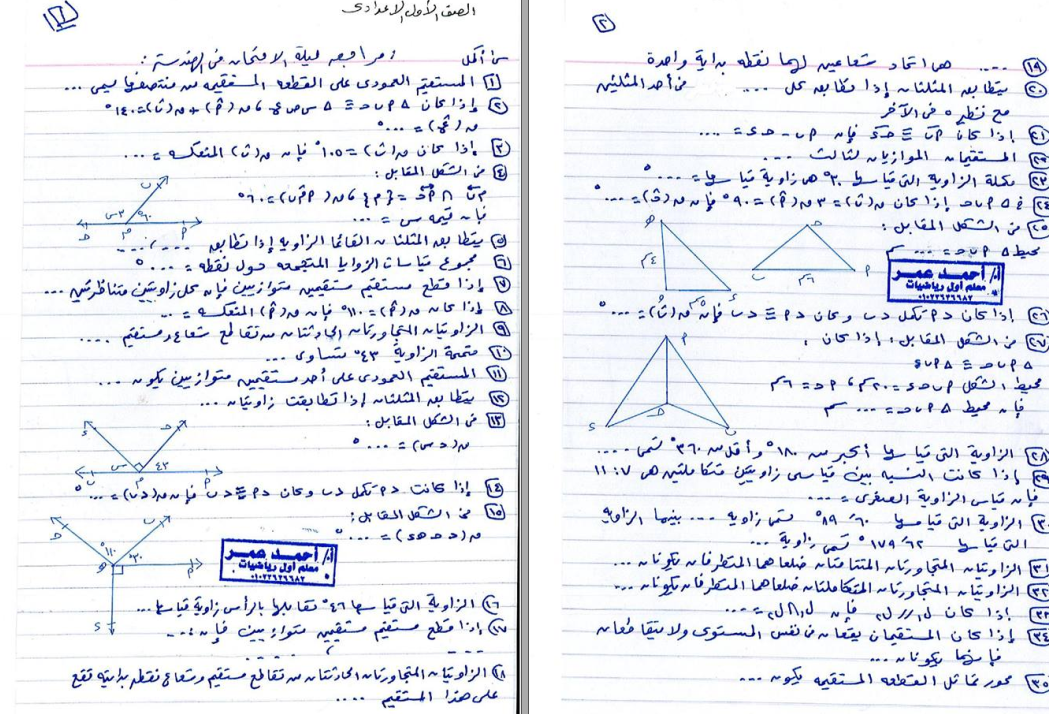 الصف الأول الإعدادى
١
س١ أكمل : مراجعة ليلة الامتحان فى الهندسة :
١ المستقيم العمودى على القطعة المستقيمة من منتصفها يسمى ...
٢ إذا كان △ أ ب ج ≡ △ س ص ع ، ق (أ) + ق (ب) = ١٤٠
ق (ع) = ...°
٣ إذا كان ق (ب) = ١٠٥° فإن ق (ب) المنعكسة = ...
٤ من الشكل المقابل :
فإن قيمة س = ...
٥ يتطابق المثلثان القائما الزاوية إذا تطابق ... ، ...
٦ مجموع قياسات الزوايا المتجمعة حول نقطة = ...°
٧ إذا قطع مستقيم مستقيمين متوازيين فإن كل زاويتين متناظرتين ...
٨ إذا كان ق (أ) = ١١٠° فإن ق (أ) المنعكسة = ...
٩ الزاويتان المتجاورتان الحادثتان من تقاطع شعاع ومستقيم ....
١٠ متممة الزاوية ٤٣° تساوى ...
١١ المستقيم العمودى على أحد مستقيمين متوازيين يكون ...
١٢ يتطابق المثلثان إذا تطابقت زاويتان ...
١٣ من الشكل المقابل :
ق (د س) = ...°
١٤ إذا كانت د أ تكمل د ب وكان د أ ≡ د ب فإن ق (د ب) = ...°
١٥ من الشكل المقابل :
أ/ أحمد عمر
معلم أول رياضيات
٠١٠٢٢٦٢٩٦٨٢
١٦ الزاوية التى قياسها ٤٦° تقابلها بالرأس زاوية قياسها ...
١٧ إذا قطع مستقيم مستقيمين متوازيين فإن : ...
١٨ الزاويتان المتجاورتان الحادثتان من تقاطع مستقيم وشعاع نقطة بدايته تقع
على هذا المستقيم ....
٢
١٩ .... هى اتحاد شعاعين لهما نقطة بداية واحدة
٢٠ يتطابق المثلثان إذا تطابق كل ... من أحد المثلثين
مع نظيره فى الآخر
٢١ إذا كان أ ب ≡ ج د فإن أ ب - ج د = ....
٢٢ المستقيمان الموازيان لثالث ...
٢٣ مكملة الزاوية التى قياسها ٣٠° هى زاوية قياسها = ...°
٢٤ فى △ أ ب ج إذا كان ق (ب) = ٣ ق (أ) = ٩٠° فإن ق (ج) = ...°
٢٥ من الشكل المقابل :
محيط △ أ ب ج = ... سم
أ/ أحمد عمر
معلم أول رياضيات
٠١٠٢٢٦٢٩٦٨٢
٢٦ إذا كان د أ تكمل د ب وكان د أ ≡ د ب فإن ق (ب) = ...°
٢٧ من الشكل المقابل : إذا كان :
△ أ ب ج ≡ △ أ د ج
محيط الشكل أ ب ج د = ٢٠ سم ، أ ج = ٦ سم
فإن محيط △ أ ب ج = ... سم
٢٨ الزاوية التى قياسها أكبر من ١٨٠° وأقل من ٣٦٠° تسمى ....
٢٩ إذا كانت النسبة بين قياسى زاويتين متكاملتين هى ٧ : ١١
فإن قياس الزاوية الصغرى = ...
٣٠ الزاوية التى قياسها ٦٠َ ٨٩° تسمى زاوية ... بينما الزاوية
التى قياسها ٦٢َ ١٧٩° تسمى زاوية ...
٣١ الزاويتان المتجاورتان المتتامتان ضلعاهما المتطرفان يكونان ...
٣٢ الزاويتان المتجاورتان المتكاملتان ضلعاهما المتطرفان يكونان ...
٣٣ إذا كان ل١ // ل٢ فإن ل١ ∩ ل٢ = ...
٣٤ إذا كان المستقيمان يقعان فى نفس المستوى ولا يتقاطعان
فإنهما يكونان ...
٣٥ محور تماثل القطعة المستقيمة يكون ...